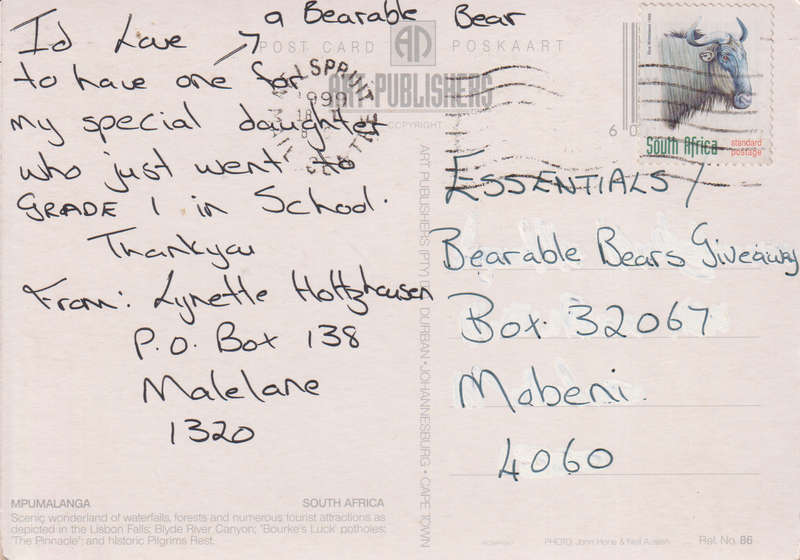 a Bearable Bear
I'd Love
to have one for
my special daughter
who just went to
GRADE 1 in School.
Thankyou
From: Lynette Holtzhausen
P.O. Box 138
Malelane
1320
POST CARD AD POSKAART
ART PUBLISHERS
COPYRIGHT
NELSPRUIT
1999
60
South Africa
standard
postage
ESSENTIALS/
Bearable Bears Giveaway
Box 32067
Mobeni.
4060
ART PUBLISHERS (PTY) LTD DURBAN • JOHANNESBURG • CAPE TOWN
MPUMALANGA SOUTH AFRICA
Scenic wonderland of waterfalls, forests and numerous tourist attractions as
depicted in the Lisbon Falls; Blyde River Canyon; 'Bourke's Luck' potholes;
'The Pinnacle'; and historic Pilgrims Rest.
PHOTO: John Hone & Neil Austen
Ref. No. 86